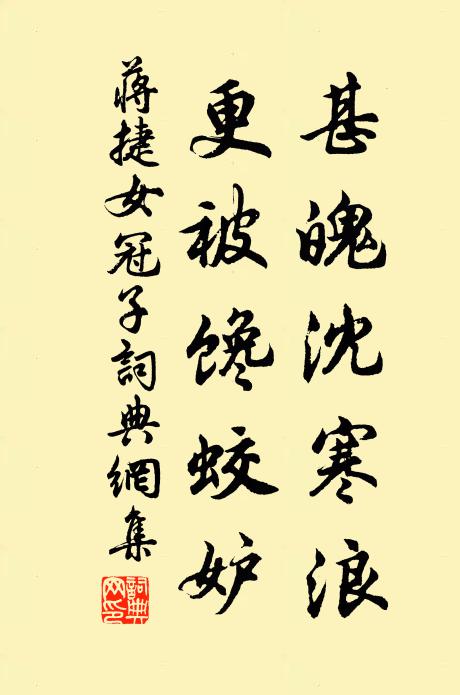 甚魄沈寒浪
更被馋蛟妒
蒋捷女冠子詞典網集
詞典网印